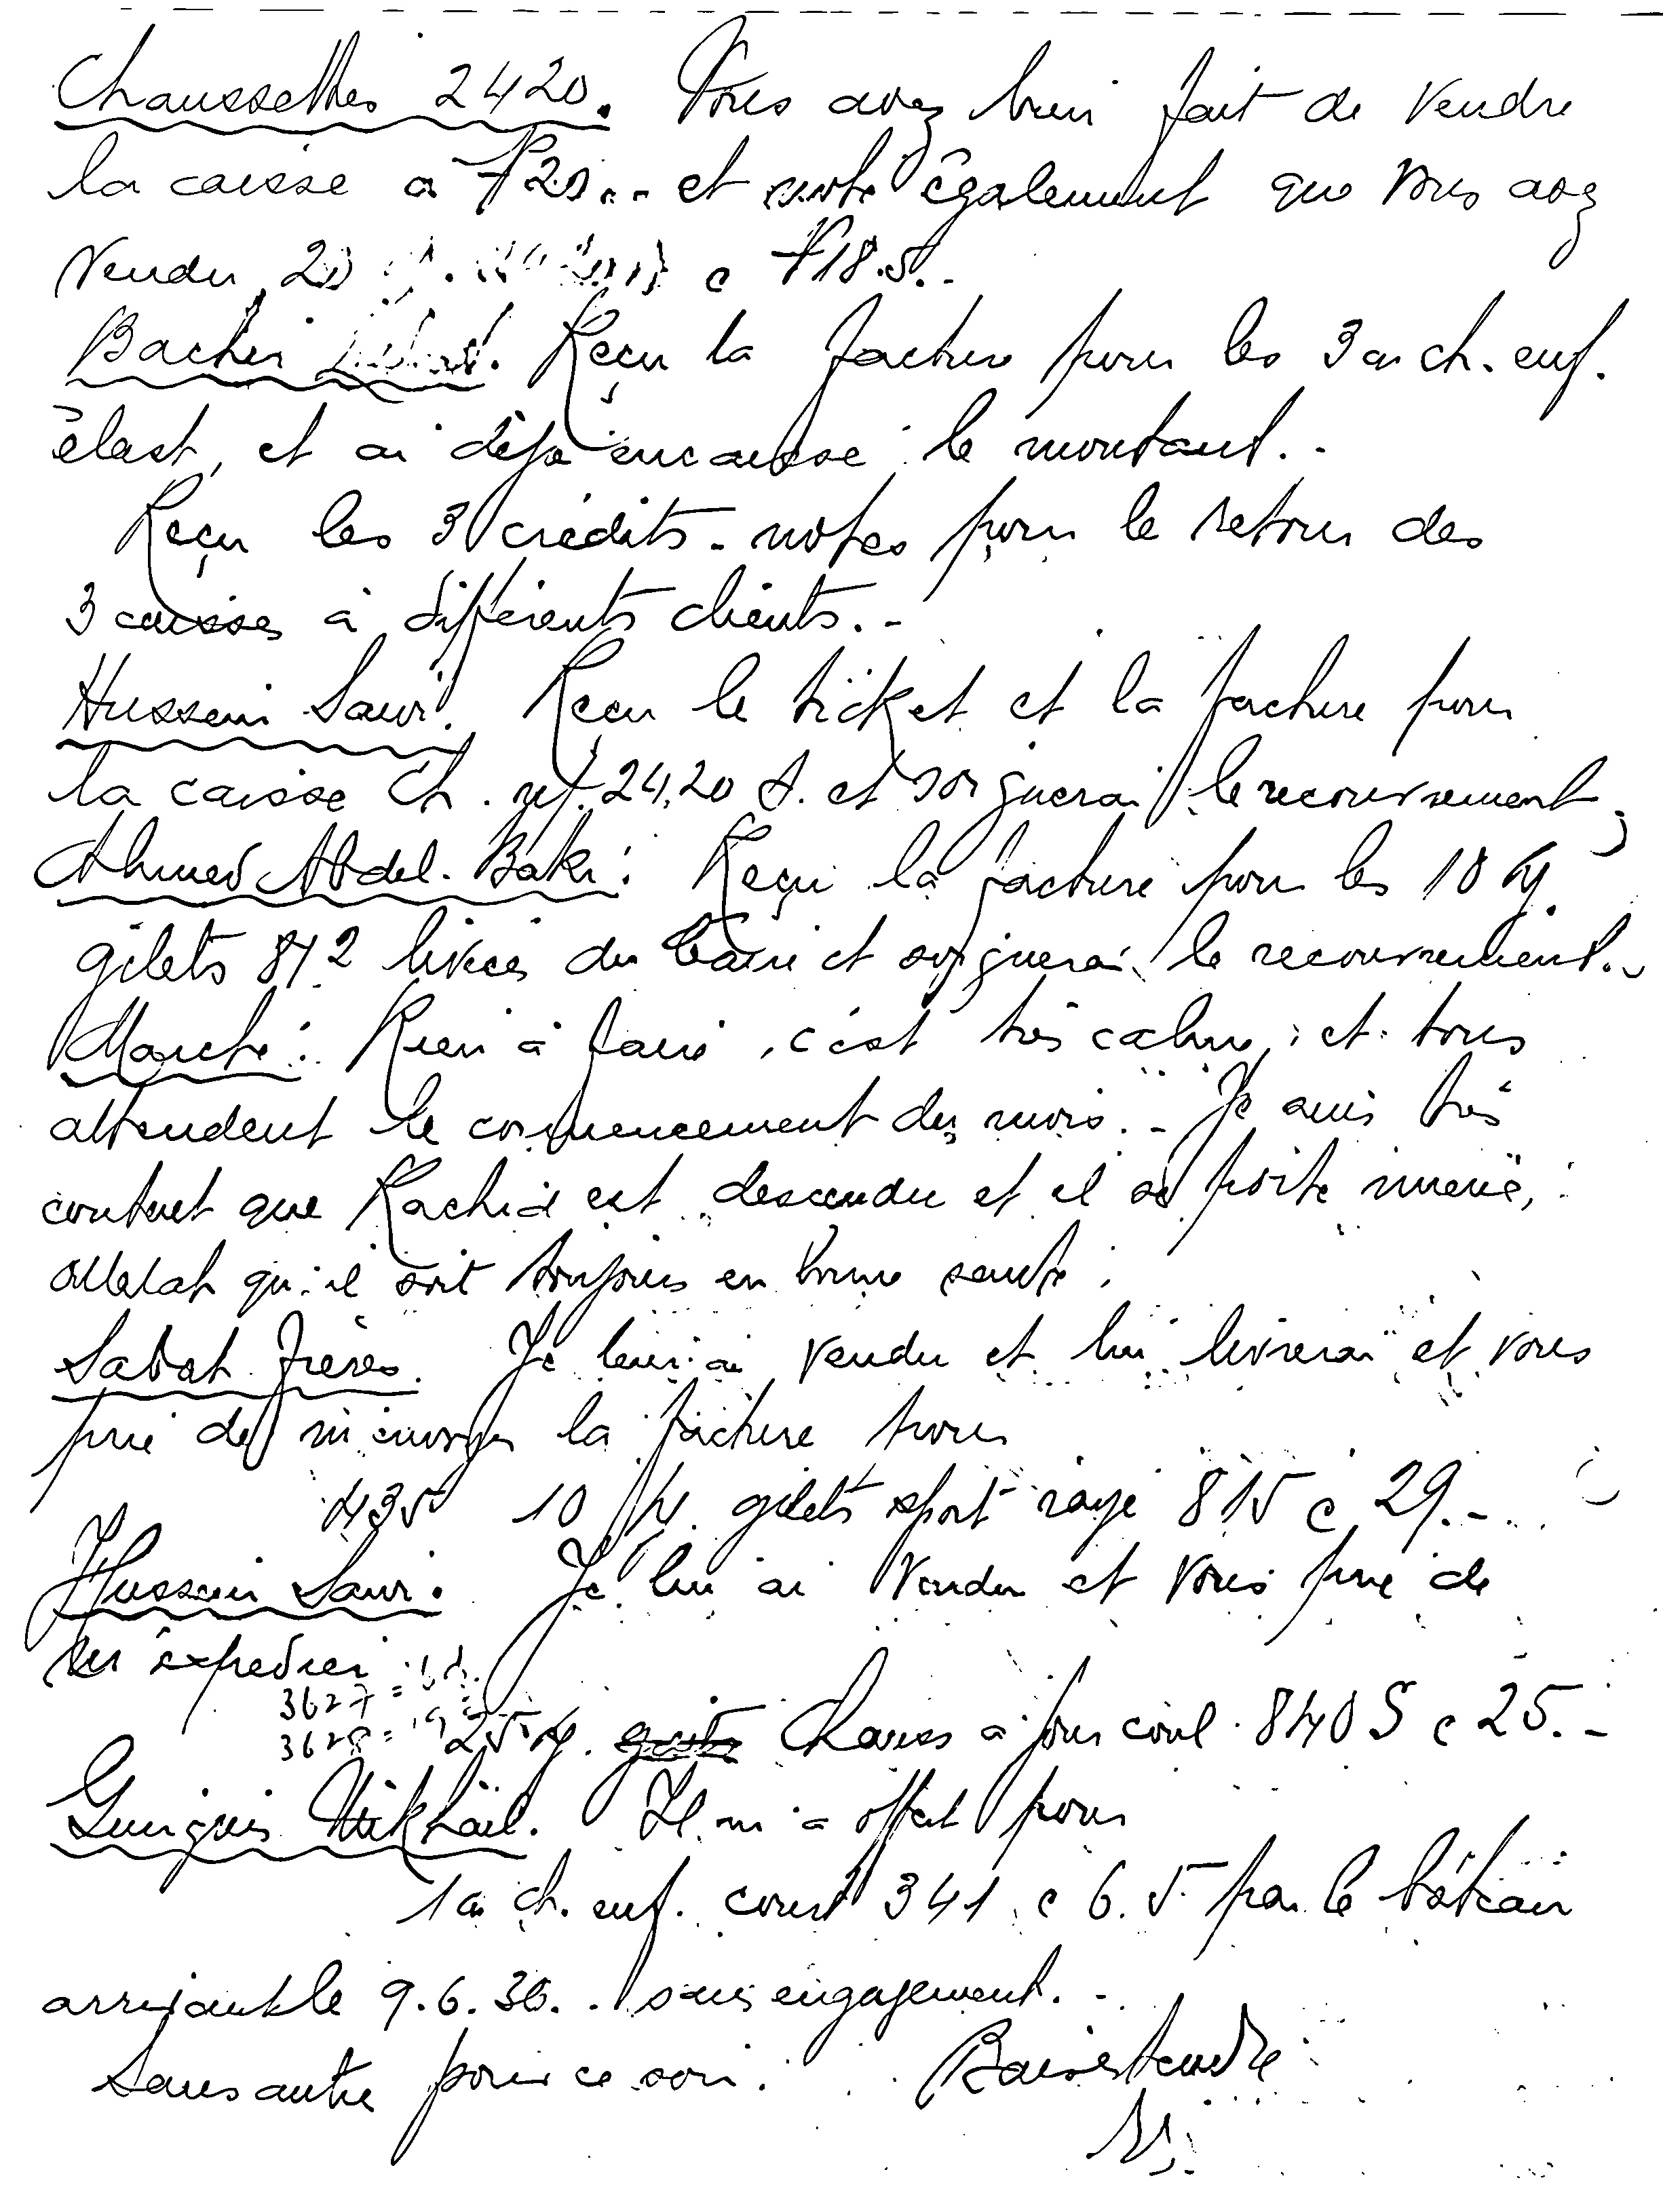 Chaussettes 2420. Vous avez bien fait de vendre
la caisse a 20.. et note également que vous avez
vendu 20 c 18.5.-
Bacher. Reçu la facture pour les 3 cs ch. enf.
élast, et ai déjà encaissé le montant.-
Reçu les 3 crédits-notes pour le retour des
3 caisses à différents clients.-
Hussein Sawi. Reçu le ticket et la facture pour
la caisse Ch. 24,20 et soignerai le recouvrement;
Ahmed Abdel-Baki: Reçu la facture pour les 10
gilets 842 livrés du Caire et soignerai le recouvrement.-
Marché: Rien à faire, c'est très calme, et tous
attendent le commencement du mois.- Je suis très
content que Rachid est descendu et il se porte mieux,
allelah qu'il soit toujours en bonne santé.
Sabat frères. Je leur ai vendu et lui livrerai et vous
prie de m'envoyer la facture pour
435 10 gilets sport rayé 815 c 29.-
Hussein Sawi. Je lui ai vendu et vous prie de
lui expédier
3627 =
3628 = 25 à jour coul. 840 S c 25.-
Guirguis Mikhaïl. Il m'a offert pour
1 cs ch. enf. court 341 c 6.5 par le bateau
arrivant le 9.6.30.. sans engagement.-
Sans autre pour ce soir. Baisers tendre